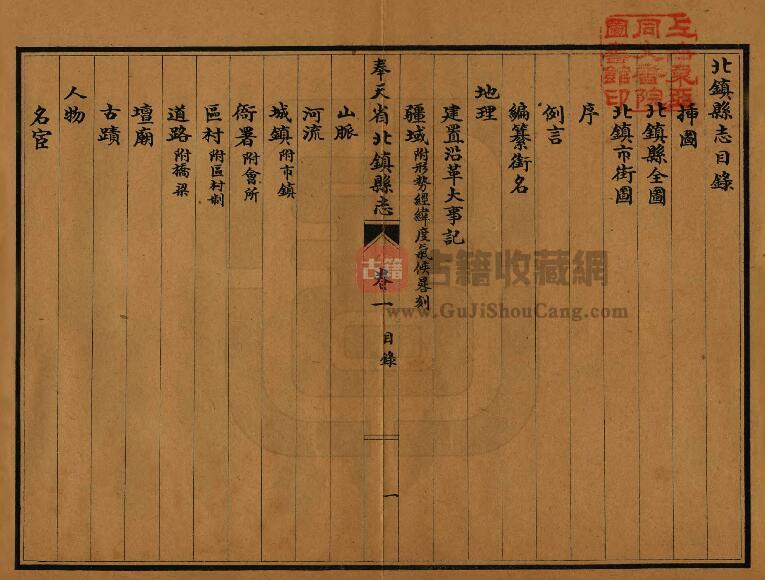 北鎮縣志目錄
插圖
北鎮縣全圖
北鎮市街圖
序
例言
編纂銜名
地理
建置沿革大事記
疆域 附形勢經緯度氣候晷刻
奉天省北鎮縣志 卷一 目錄 一
山脈
河流
城鎮 附市鎮
衙署 附會所
區村 附區村制
道路 附橋梁
壇廟
古蹟
人物
名宦
上海東亞
同文書院
圖書館印
古籍
古籍收藏網
www.GuJiShouCang.com